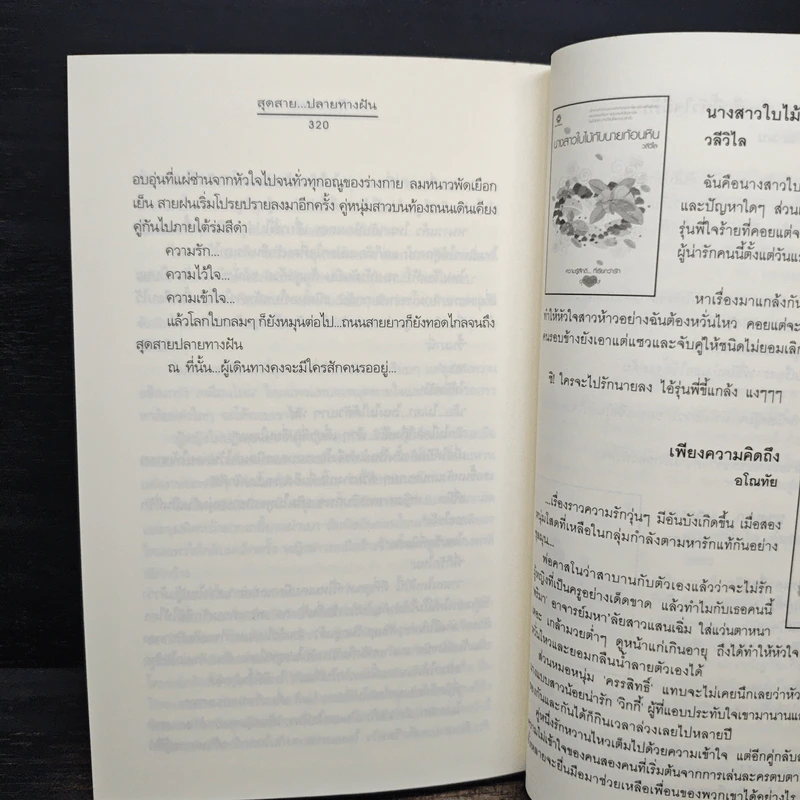 สุดสาย...ปลายทางฝัน
320
อบอุ่นที่แผ่ซ่านจากหัวใจไปจนทั่วทุกอณูของร่างกาย ลมหนาวพัดเยือก
เย็น สายฝนเริ่มโปรยปรายลงมาอีกครั้ง คู่หนุ่มสาวบนท้องถนนเดินเคียง
คู่กันไปภายใต้ร่มสีดำ
ความรัก...
ความไว้ใจ...
ความเข้าใจ...
แล้วโลกใบกลมๆ ก็ยังหมุนต่อไป...ถนนสายยาวก็ยังทอดไกลจนถึง
สุดสายปลายทางฝัน
ณ ที่นั้น...ผู้เดินทางคงจะมีใครสักคนรออยู่...
นางสาวใบไม้กับนายก้อนหิน
วลีวิไล
ความรู้สึกดี... ที่เรียกว่ารัก
นางสาวใบไม้
วลีวิไล
ฉันคือนางสาวใบ
และปัญหาใดๆ ส่วนเ
รุ่นพี่ใจร้ายที่คอยแต่จะ
ผู้น่ารักคนนี้ตั้งแต่วันแร
หาเรื่องมาแกล้งกัน
ทำให้หัวใจสาวห้าวอย่างฉันต้องหวั่นไหว คอยแต่จะ
คนรอบข้างยังเอาแต่แซวและจับคู่ให้ชนิดไม่ยอมเลิก
ชิ! ใครจะไปรักนายลง ไอ้รุ่นพี่ขี้แกล้ง แงๆๆๆ
เพียงความคิดถึง
อโณทัย
...เรื่องราวความรักวุ่นๆ มีอันบังเกิดขึ้น เมื่อสอง
หนุ่มโสดที่เหลือในกลุ่มกำลังตามหารักแท้กันอย่าง
พ่อคาสโนว่าสาบานกับตัวเองแล้วว่าจะไม่รัก
ผู้หญิงที่เป็นครูอย่างเด็ดขาด แล้วทำไมกับเธอคนนี้
อาจารย์มหา'ลัยสาวแสนเฉิ่ม ใส่แว่นตาหนา
เกล้ามวยต่ำๆ ดูหน้าแก่เกินอายุ ถึงได้ทำให้หัวใจ
หวั่นไหวและยอมกลืนน้ำลายตัวเองได้
ส่วนหมอหนุ่ม 'ครรสิทธิ์' แทบจะไม่เคยนึกเลยว่าหัว
นางแบบสาวน้อยน่ารัก 'วิกกี้' ผู้ที่แอบประทับใจเขามานานแล
ของกันและกันได้ก็กินเวลาล่วงเลยไปหลายปี
คู่หนึ่งรักหวานไหวเต็มไปด้วยความเข้าใจ แต่อีกคู่กลับส
ความไม่เข้าใจของคนสองคนที่เริ่มต้นจากการเล่นละครตบตา
หลายจะยื่นมือมาช่วยเหลือเพื่อนของพวกเขาได้อย่างไร